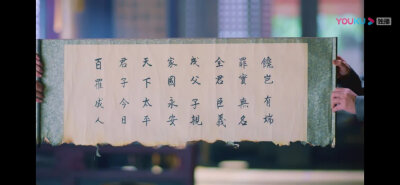 YOUKU 独播
饒豈有端
罪實無名
全君臣義
成父子親
家國永安
天下太平
君子今日
百羅成人